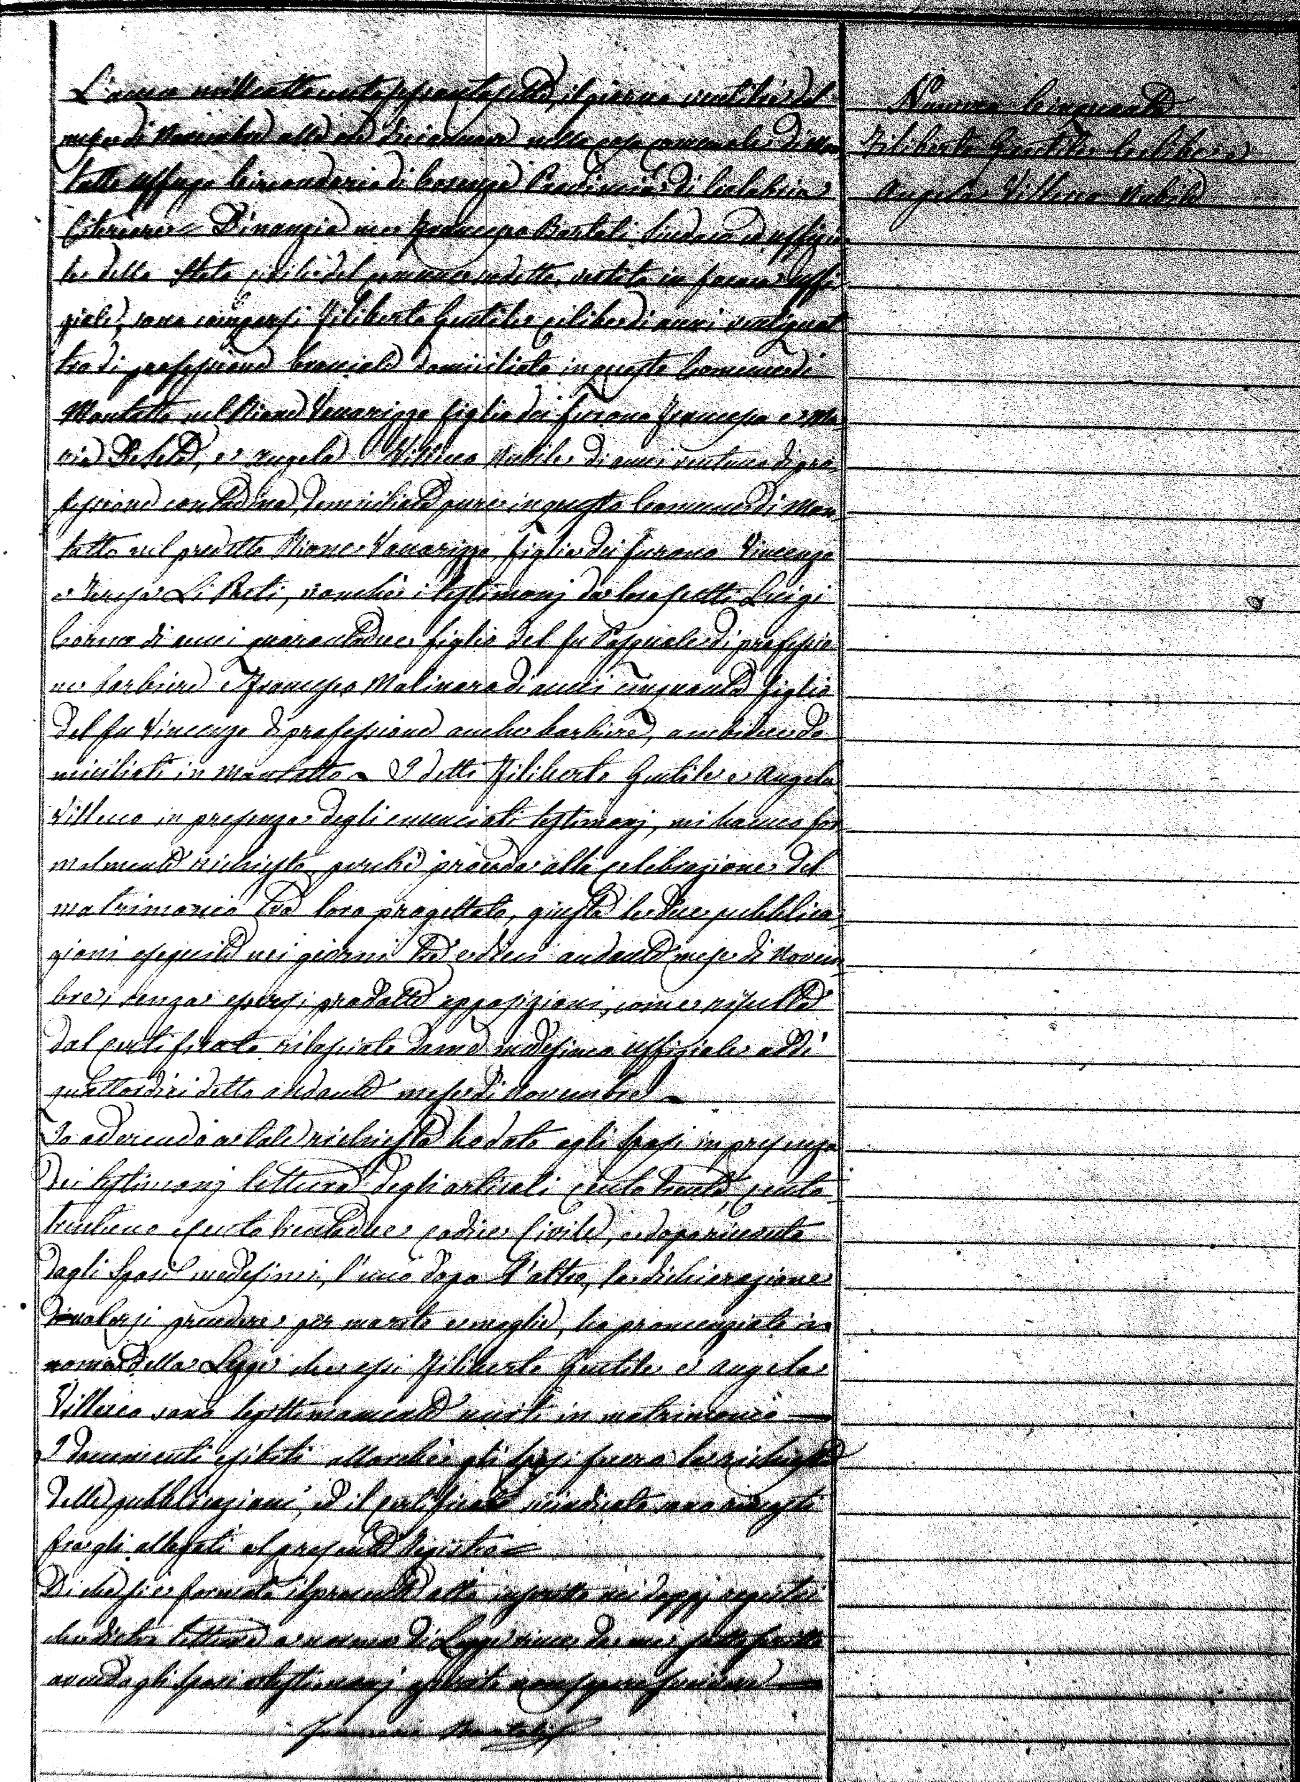 L'anno milleottocentosessantasette, il giorno ventitre del
mese di Novembre alle ore diciannove nella casa comunale di Mon
talto Uffugo Circondario di Cosenza Provincia di Calabria
Citeriore Dinanzi a me Francesco Bartoli Sindaco ed uffizia
le dello Stato civile del comune sudetto, vestito in forma uffi
ziale, sono comparsi Filiberto Gentile celibe di anni ventiquat
tro di professione bracciale domiciliato in questo Comune di
Montalto nel Rione Vaccarizzo figlio dei furono Francesco e Ma
ria, e Angela Villecco Nubile di anni ventuno di pro
fessione contadina, domiciliata pure in questo Comune di Mon
talto nel predetto Rione Vaccarizzo figlia dei furono Vincenzo
e Teresa Li Preti, nonchè i testimonj da loro scelti Luigi
di anni quarantadue figlio del fu Pasquale di professio
ne barbiere e Francesco Molinaro di anni cinquanta figlio
del fu Vincenzo di professione anche barbiere, ambidue do
miciliati in Montalto. I detti Filiberto Gentile e Angela
Villecco in presenza degli enunciati testimonj, mi hanno for
malmente richiesto perchè proceda alla celebrazione del
matrimonio tra loro progettato, giusta le due pubblica
zioni eseguite nei giorni tre e dieci andante mese di Novem
bre, senza essersi prodotte opposizioni, come risulta
dal certificato rilasciato da me medesimo uffiziale addì
quattordici detto andante mese di Novembre.
Io aderendo a tale richiesta ho dato agli sposi in presenza
dei testimonj lettura degli articoli cento trenta, cento
trentuno e cento trentadue codice Civile, e dopo ricevuta
dagli sposi medesimi, l'uno dopo l'altro, la dichiarazione
di volersi prendere per marito e moglie, ho pronunziato in
nome della Legge che essi Filiberto Gentile e Angela
Villecco sono legittimamente uniti in matrimonio
I documenti esibiti allorchè gli sposi fecero la richiesta
delle pubblicazioni, ed il certificato sono inserti
fra gli allegati al presente Registro
Di che si è formato il presente atto inserito nei doppj registri
che dietro lettura a norma di Legge viene da me sottoscritto
avendo gli sposi e testimonj asserito non sapere scrivere
Francesco Bartoli
Numero Cinquanta
Filiberto Gentile Celibe con
Angela Villecco Nubile